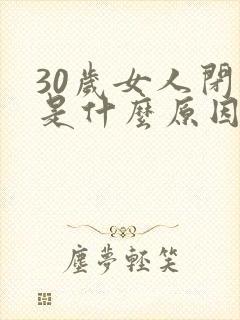 30歲女人閉
是什麼原因
塵夢輕笑